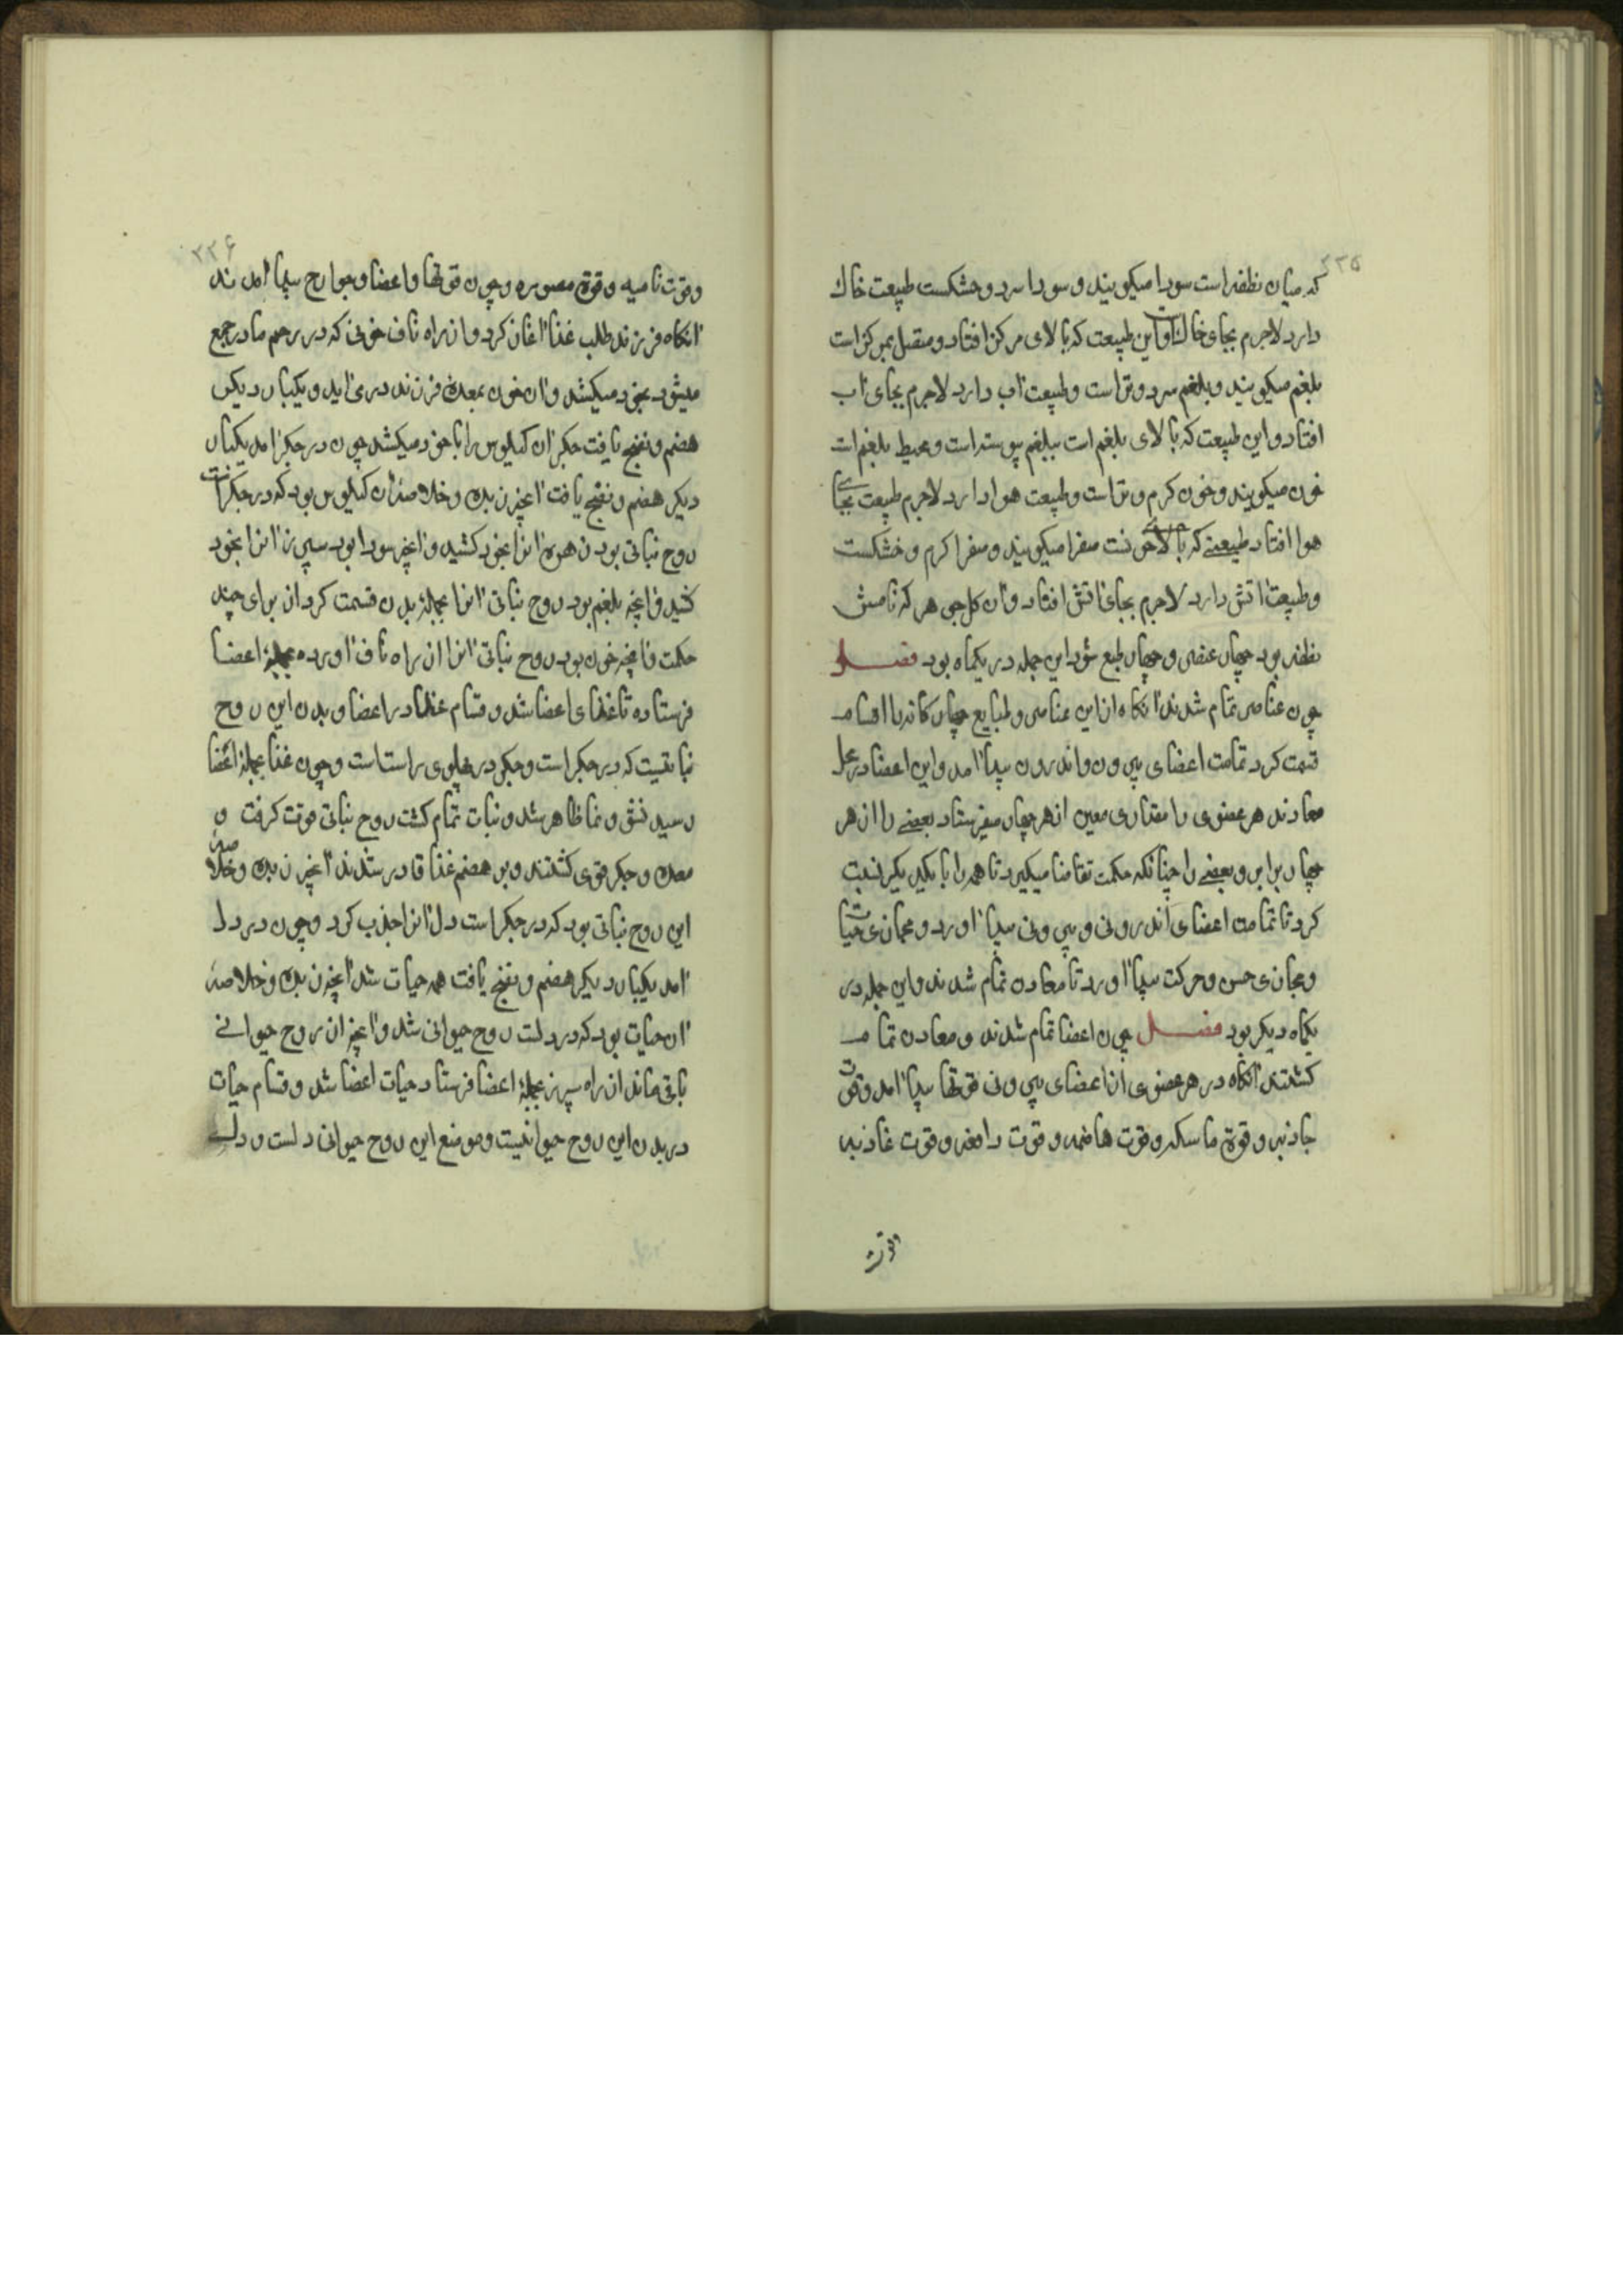 ۲۳۵
که میان نطفه است سودا میکویند و سودا سرد و خشکست طبیعت خاك
دارد لاجرم بجای خاك افتاد و این طبیعت که بالای مرکز افتاد و متصل بمرکز است
بلغم میکویند و بلغم سرد و تر است و طبیعت آب دارد لاجرم بجای آب
افتاد و این طبیعت که بالای بلغم است ببلغم پیوسته است و محیط بلغم است
خون میکویند و خون کرم و تر است و طبیعت هوا دارد لاجرم طبیعت بجای
هوا افتاد طبیعتی که بالای خونست صفرا میکویند و صفرا کرم و خشکست
و طبیعت آتش دارد لاجرم بجای آتش افتاد و آن که نامش
نطفه بود چهار عنصر و چهار طبع شود این جمله در یکماه بود فصل
چون عناصر تمام شدند آنکاه از این عناصر و طبایع چهارکانه با اقسام
قسمت کرد تمامت اعضای بیرون و اندرون پیدا آمد و این اعضا در محل
معادند هر عضوی را مقداری معین از هر چهار میفرستاد بعضی را از هر
چهار برابر و بعضی را چنانکه حکمت تقاضا میکیرد تا همه را با یکدیکر نسبت
کرد تا تمامت اعضای اندرونی و بیرونی پیدا آورد و مجاری حیات
و مجاری حس و حرکت پیدا آورد تا معادن تمام شدند و این جمله در
یکماه دیکر بود فصل چون اعضا تمام شدند و معادن تمام
کشتند آنکاه در هر عضوی از اعضای بیرونی قوتها پیدا آمد و قوت
جاذبه و قوة ماسکه و قوت هاضمه و قوت دافعه و قوت غاذیه
۲۳۶
و قوت نامیه و قوة مصوره و چون قوتها و اعضا و جوارح پیدا آمدند
آنکاه فرزند طلب غذا آغاز کرد و از راه ناف خونی که در رحم مادر جمع
میشود بخود میکشد و آن خون بمعده فرزند در می آید و یکبار دیکر
هضم و نضج یافت جکر آن کیلوس را با خود میکشد چون در جکر آمد یکبار
دیکر هضم و نضج یافت آنچه زبده و خلاصه آن کیلوس بود که در جکر است
روح نباتی بود زهره آنرا بخود کشید و آنچه سودا بود سپرز آنرا بخود
کشید و آنچه بلغم بود روح نباتی آنرا بجمله بدن قسمت کرد از برای چند
حکمت و آنچه خون بود روح نباتی آنرا از راه ناف آورده بجمله اعضا
فرستاده تا غذای اعضا شد و قسام غذا در اعضا و بدن این روح
نباتیست که در جکر است و جکر در پهلوی راست است و چون غذا بجمله اعضا
رسید نشو و نما ظاهر شد و نبات تمام کشت روح نباتی قوت کرفت و
معده و جکر قوی کشتند و بر هضم غذا قادر شدند آنچه زبده و خلاصه
این روح نباتی بود که در جکر است دل آنرا جذب کرد و چون در دل
آمد یکبار دیکر هضم و نضج یافت همه حیات شد آنچه زبده و خلاصه
آن حیات بود که در دلست روح حیوانی شد و آنچه از روح حیوانی
باقی ماند از راه سپرز بجمله اعضا فرستاد حیات اعضا شد و قسام حیات
در بدن این روح حیوانیست و موضع این روح حیوانی دلست و دل